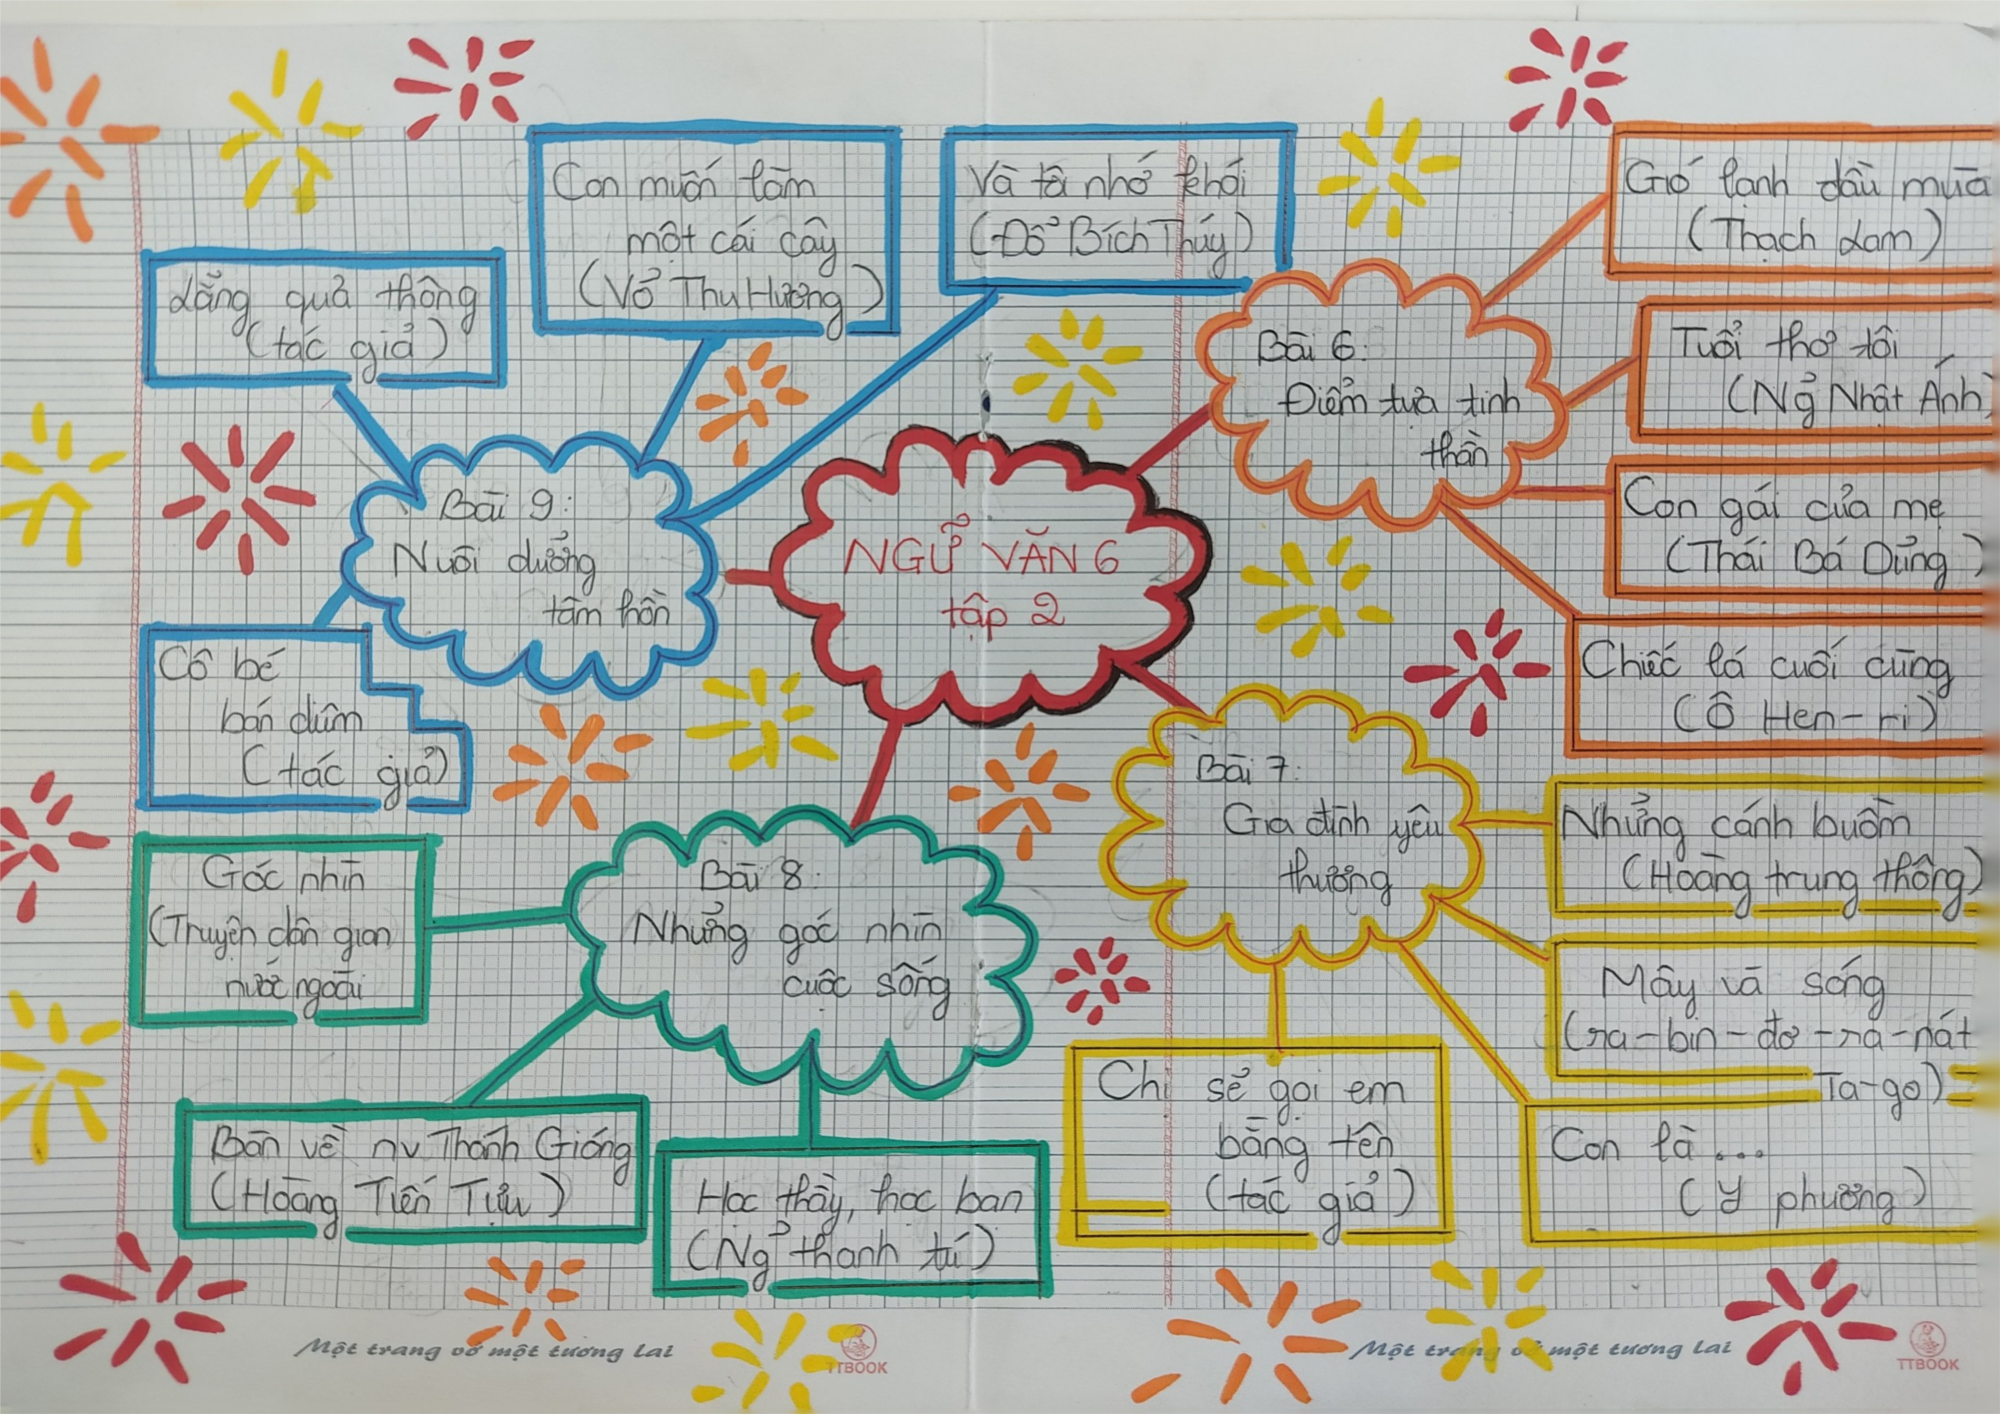 NGỮ VĂN 6
tập 2
Bài 6:
Điểm tựa tinh
thần
Gió lạnh đầu mùa
(Thạch Lam)
Tuổi thơ tôi
(Ng̉ Nhật Ánh)
Con gái của mẹ
(Thái Bá Dũng)
Chiếc lá cuối cùng
(Ô Hen-ri)
Bài 7:
Gia đình yêu
thương
Những cánh buồm
(Hoàng trung thông)
Mây và sóng
(ra-bin-đơ-ra-nát
Ta-go)
Con là...
(Y phương)
Chị sẽ gọi em
bằng tên
(tác giả)
Bài 8:
Những góc nhìn
cuộc sống
Học thầy, học bạn
(Ng̉ thanh tú)
Bàn về nv Thánh Gióng
(Hoàng Tiến Tựu)
Góc nhìn
(Truyện dân gian
nước ngoài
Bài 9:
Nuôi dưỡng
tâm hồn
Lẵng quả thông
(tác giả)
Con muốn làm
một cái cây
(Võ Thu Hương)
Và tôi nhớ khói
(Đỗ Bích Thúy)
Cô bé
bán diêm
(tác giả)
Một trang vở một tương lai
TTBOOK
Một trang vở một tương lai
TTBOOK